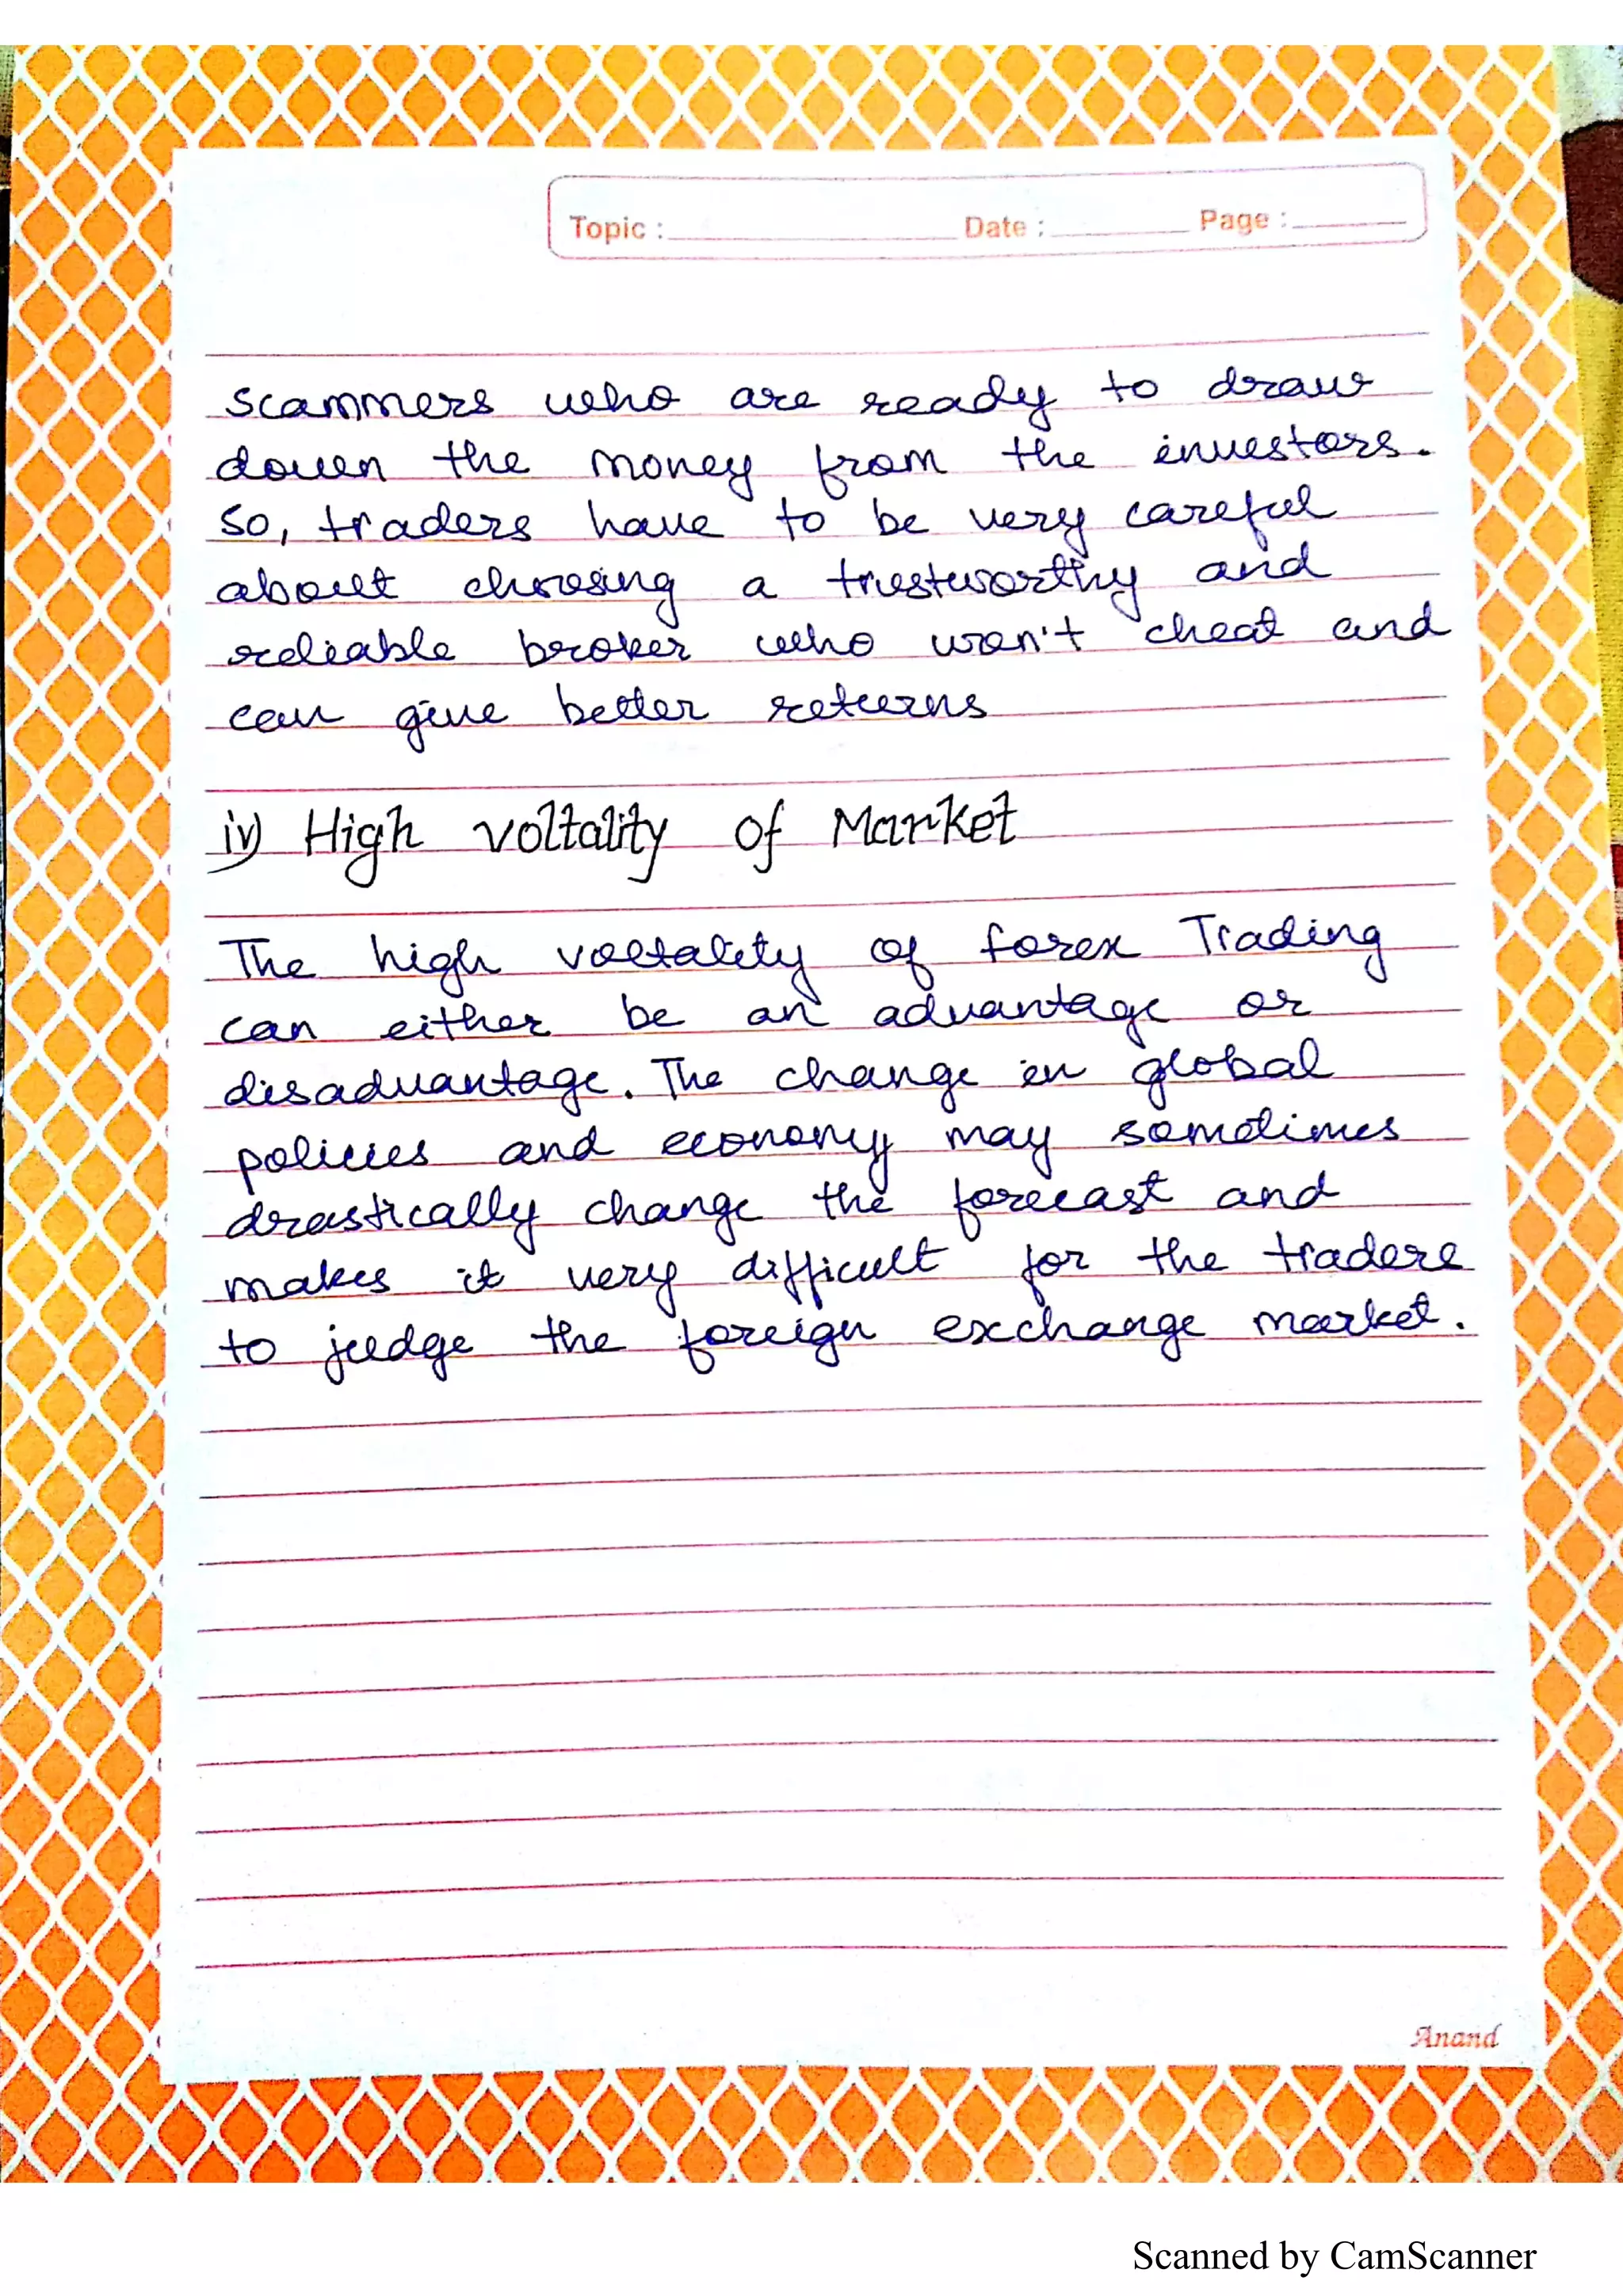 Topic : Date : Page :
scammers who are ready to draw
down the money from the investors.
So, traders have to be very careful
about choosing a trustworthy and
reliable broker who won't cheat and
can give better returns
iv) High voltality of Market
The high voltality of forex Trading
can either be an advantage or
disadvantage. The change in global
policies and economy may sometimes
drastically change the forecast and
makes it very difficult for the traders
to judge the foreign exchange market.
Anand
Scanned by CamScanner